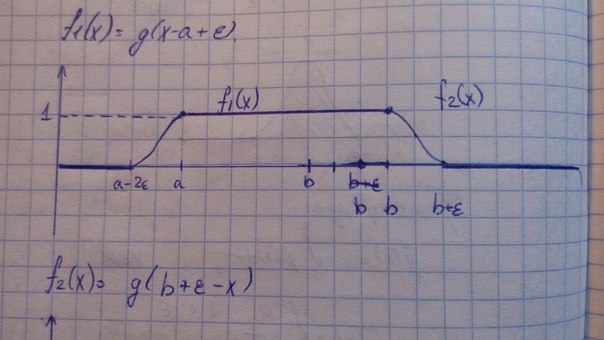 f₁(x) = g(x-a+ε).
1 f₁(x) f₂(x)
a-2ε a b b+ε
b b b+ε
f₂(x) = g(b+ε-x)